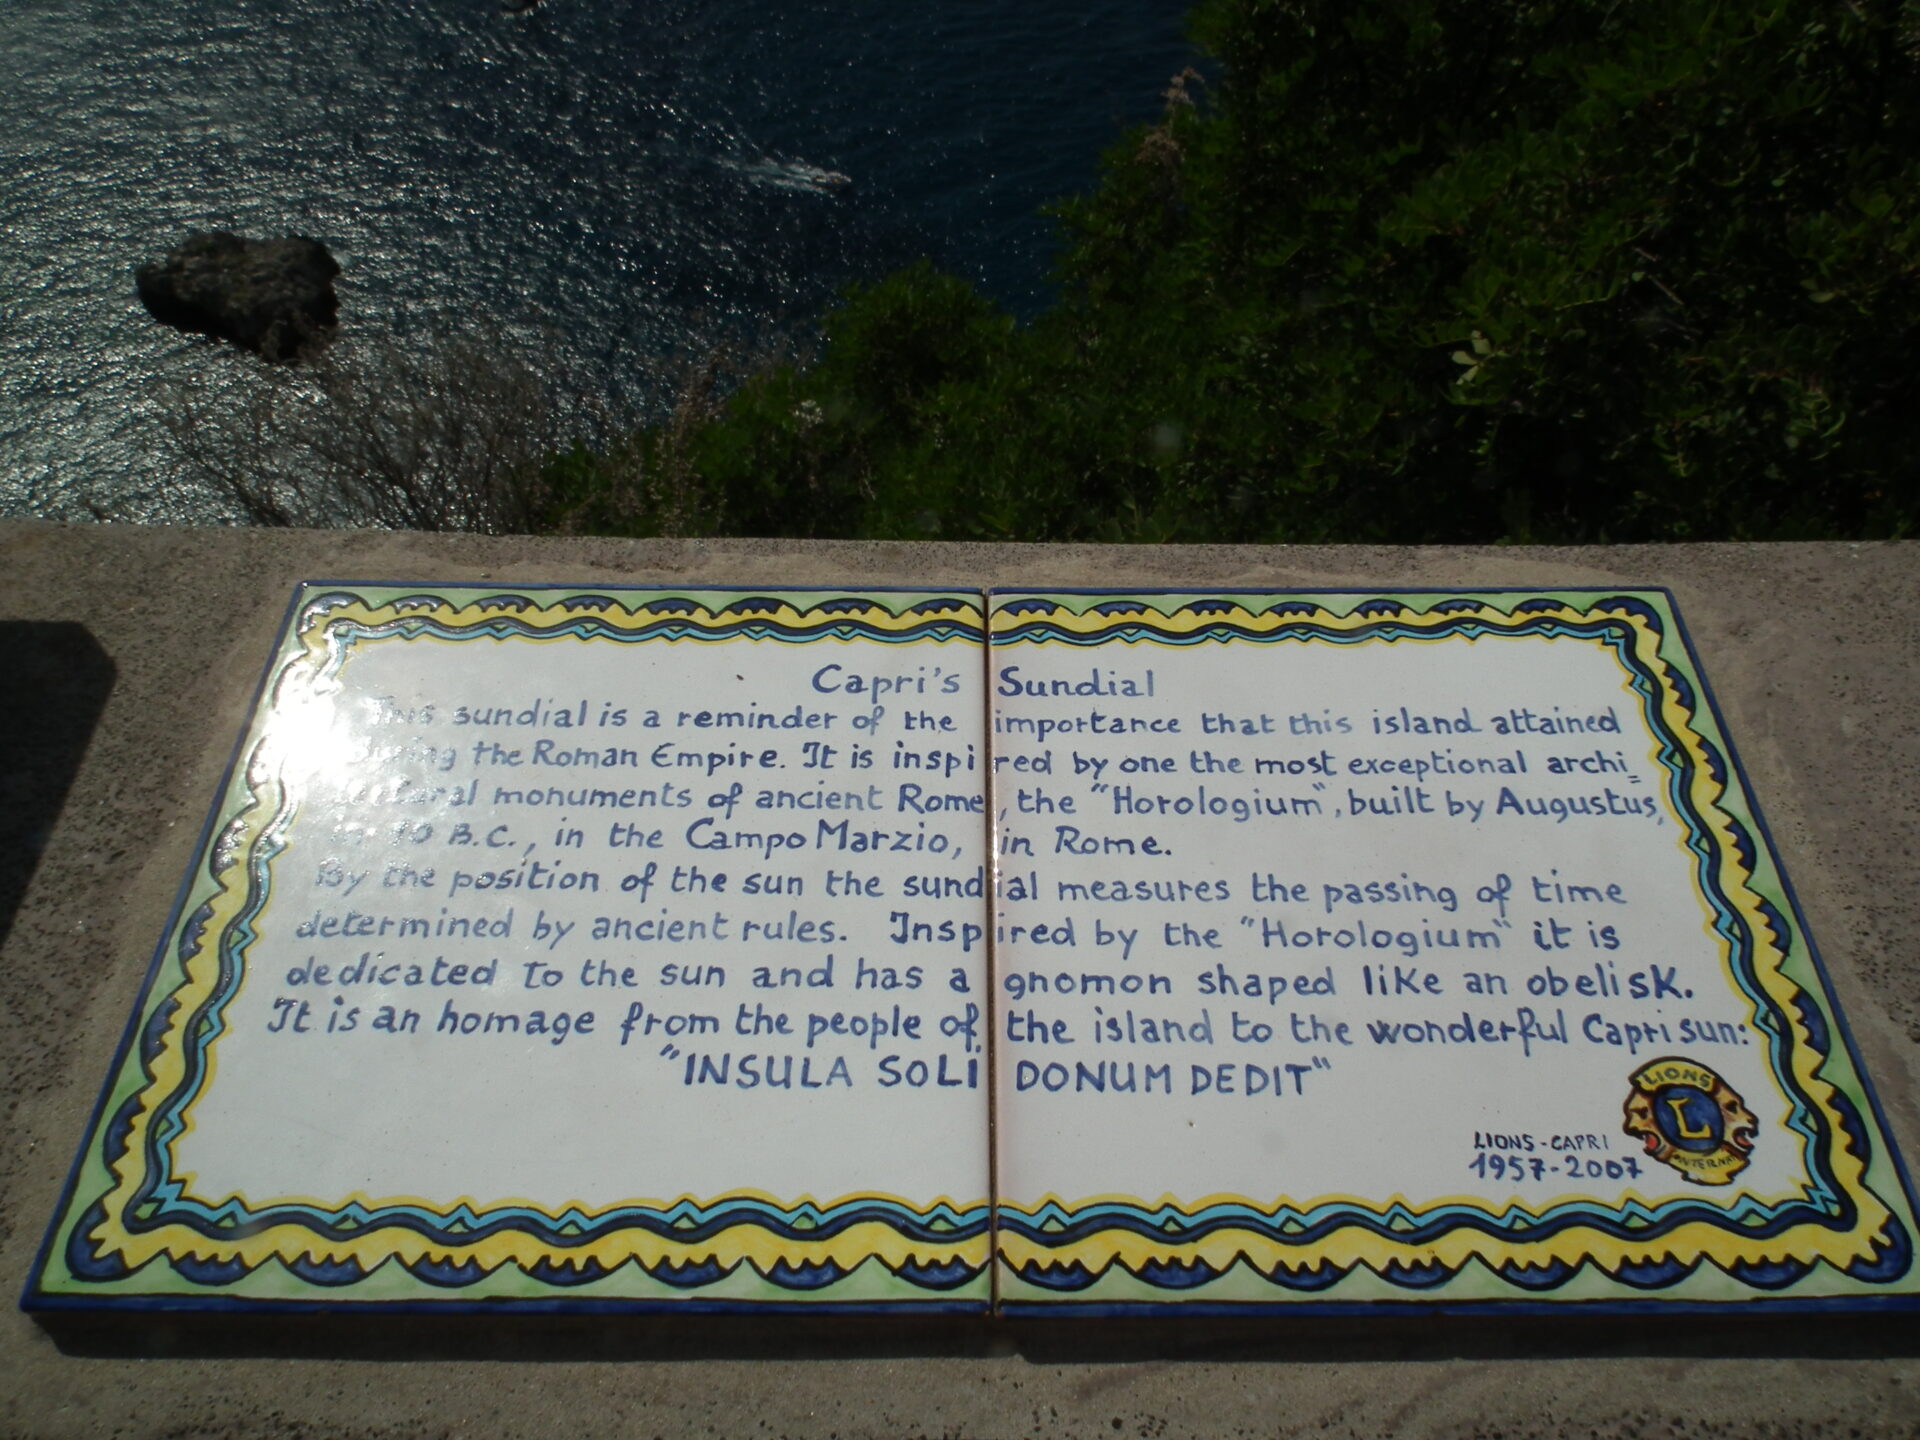 Capri's Sundial
This sundial is a reminder of the importance that this island attained
during the Roman Empire. It is inspired by one the most exceptional archi=
tectural monuments of ancient Rome, the "Horologium", built by Augustus,
in 10 B.C., in the Campo Marzio, in Rome.
By the position of the sun the sundial measures the passing of time
determined by ancient rules. Inspired by the "Horologium" it is
dedicated to the sun and has a gnomon shaped like an obelisk.
It is an homage from the people of the island to the wonderful Capri sun:
"INSULA SOLI DONUM DEDIT"
LIONS
L
INTERNA
LIONS-CAPRI
1957-2007